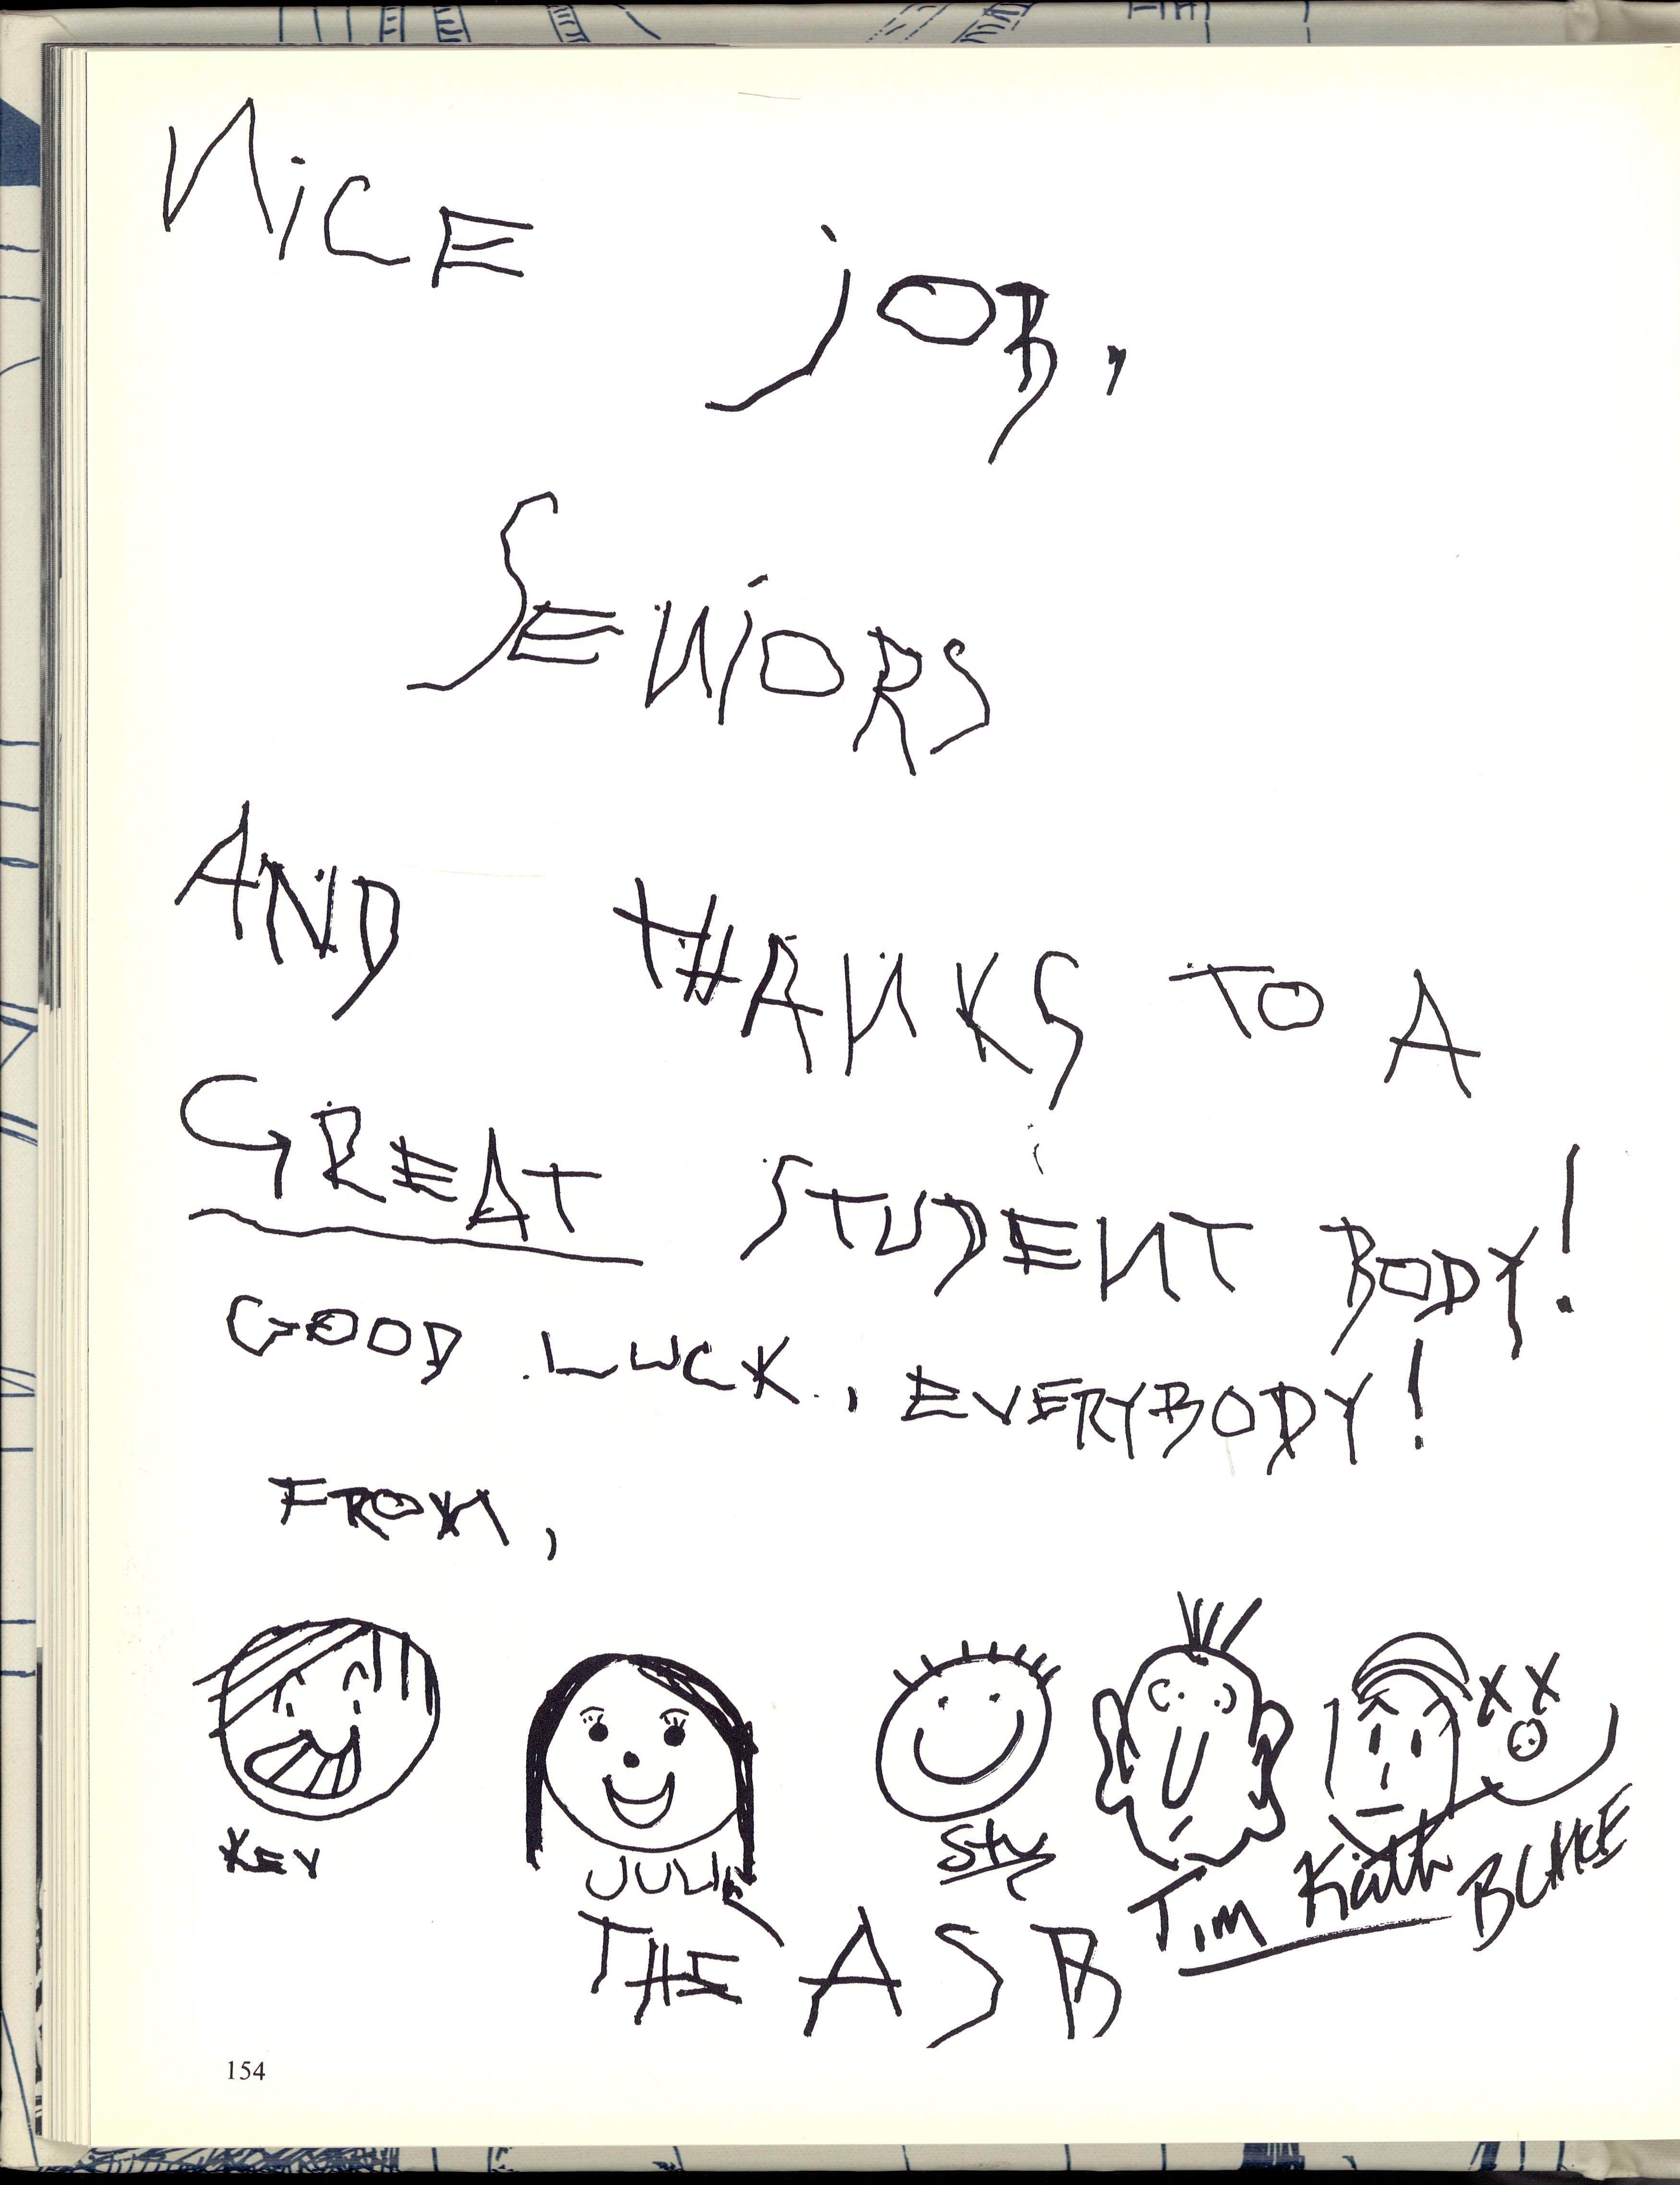 NiCE jOB,
SENiORS
AND THANKS TO A
GREAT STUDENT BODY!
GOOD LUCK, EVERYBODY!
FROM,
KEV JULIE Stu Tim Keith BLAKE
THE ASB
154